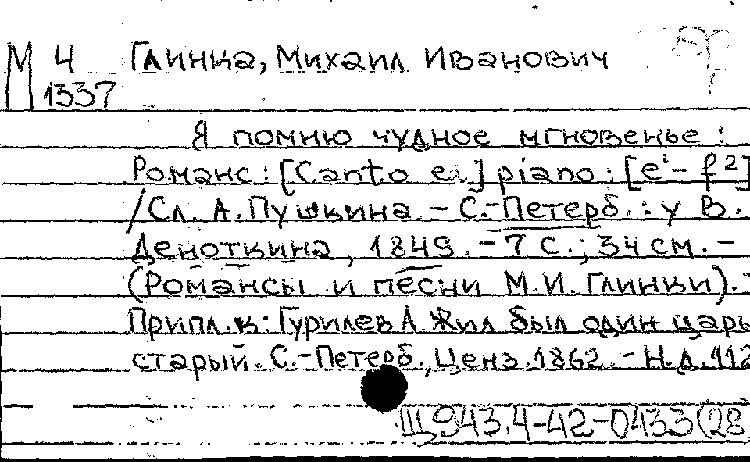 М 4 Глинка, Михаил Иванович
1337
Я помню чудное мгновенье:
Романс: [Canto e] piano: [e¹–f²]
/Сл. А. Пушкина – С.-Петерб.: у В.
Деноткина, 1849. – 7 с.; 34 см. –
(Романсы и песни М.И. Глинки). –
Припл. к: Гурилев А. Жил был один царь
старый. С.-Петерб., Ценз. 1862. – Н.д. 112
Щ943.4-42-0433(28